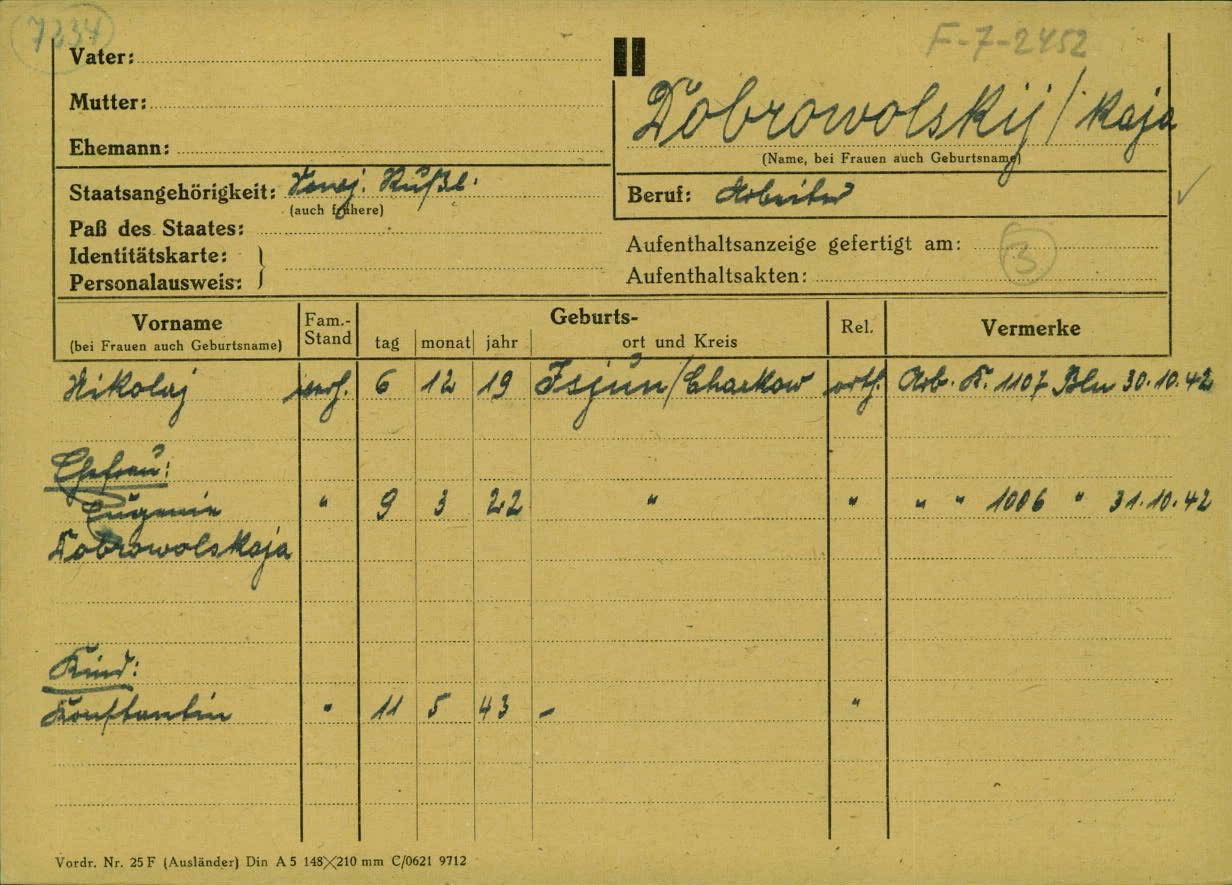 7234
F-7-2452
Vater:
Mutter:
Ehemann:
Dobrowolskij / kaja
(Name, bei Frauen auch Geburtsname)
Staatsangehörigkeit: Rußl.
(auch frühere)
Beruf: Arbeiter
Paß des Staates:
Identitätskarte:
Personalausweis:
Aufenthaltsanzeige gefertigt am:
3
Aufenthaltsakten:
Vorname
(bei Frauen auch Geburtsname)
Fam.-
Stand
Geburts-
tag monat jahr ort und Kreis
Rel.
Vermerke
Nikolaj verh. 6 12 19 Isjùn/Charkow orth. Arb. K. 1107 Bln 30.10.42
Ehefrau:
Eugenie " 9 3 22 " " " " 1006 " 31.10.42
Dobrowolskaja
Kind:
Konstantin " 11 5 43 - "
Vordr. Nr. 25 F (Ausländer) Din A 5 148×210 mm C/0621 9712